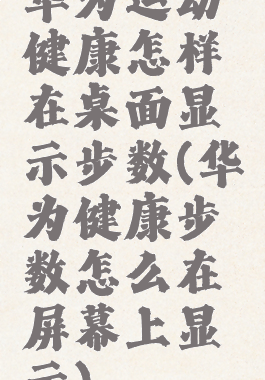 华为运动
健康怎样
在桌面显
示步数(华
为健康步
数怎么在
屏幕上显
示)